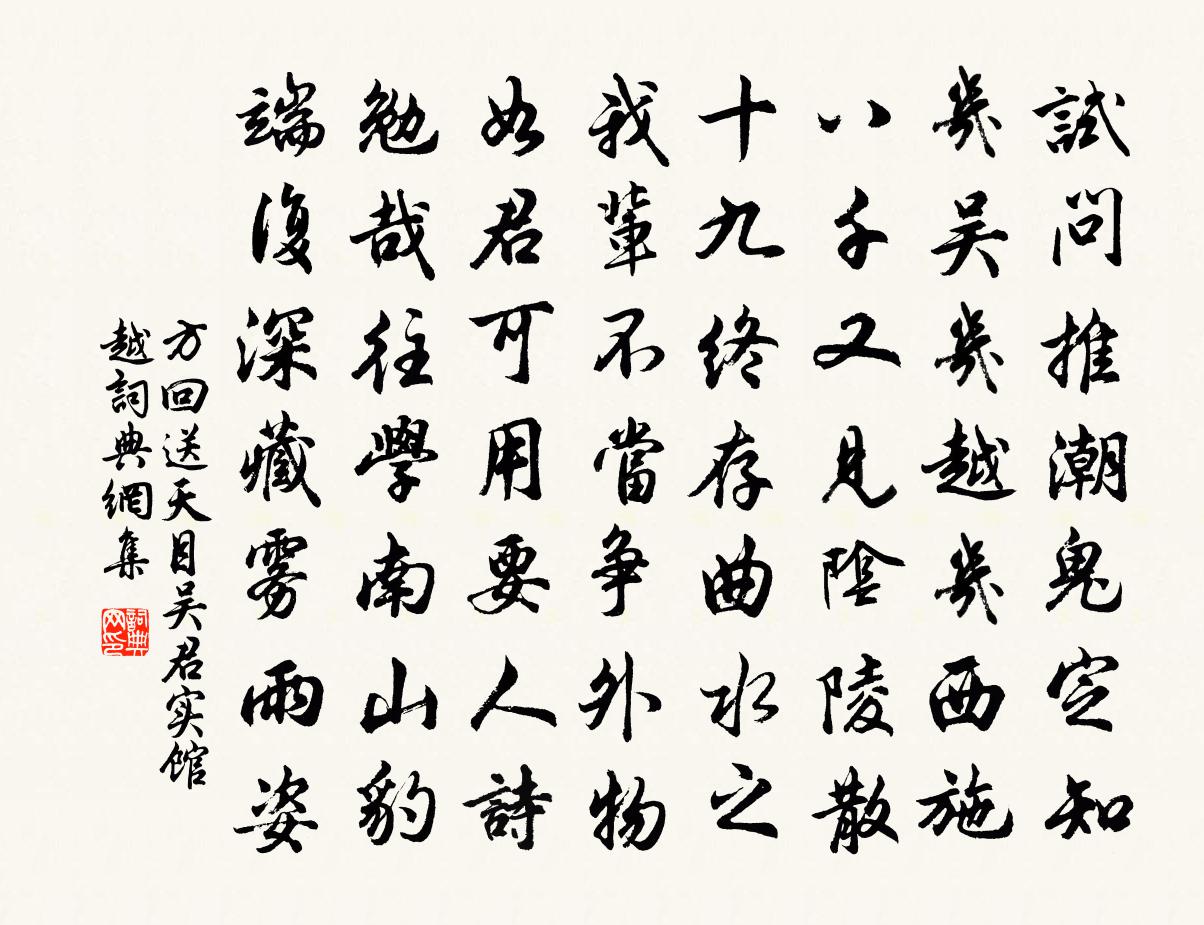 試問推潮鬼定知
幾吴幾越幾西施
八千又見陰陵散
十九終存曲水之
我輩不當爭外物
如君可用要人詩
勉哉往學南山豹
端復深藏雾雨姿
方回送天目吴君实馆
越詞典網集
詞典网印